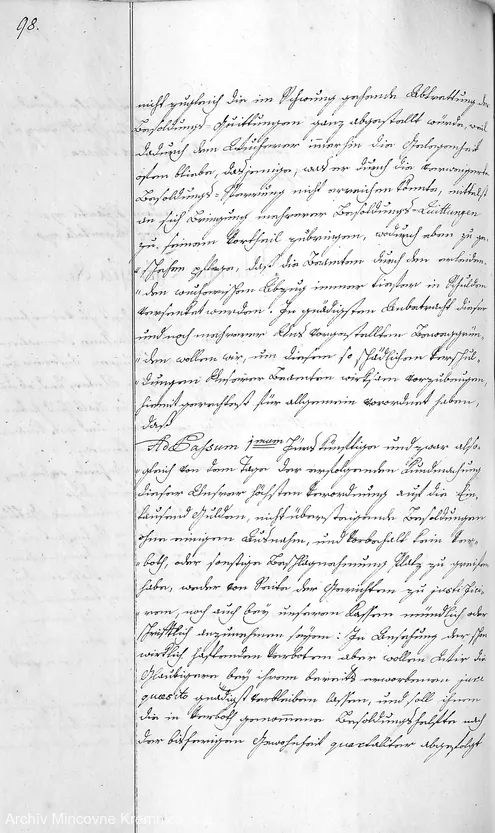 98.
nicht zugleich die im Schwung gehende Abtrettung der
Besoldungs-Quittungen ganz abgestellt würde, weil
dadurch dem Wucherer immerhin die Gelegenheit
offen bliebe, dasjenige, was er durch die verweigerte
Besoldungs-Sperrung nicht erreichen konnte, mittelst
an sich Bringung mehrerer Besoldungs-Quittungen
zu seinem Vortheil zubringen, wodurch eben zu ge-
schehen pflege, daß die Beamten durch den erleiden-
den wucherischen Abzug immer tiefer in Schulden
versenket werden. In gnädigsten Anbetracht dieser
und noch mehrerer Uns vorgestellten Beweggrün-
den wollen wir, um diesen so schädlichen Verschul-
dungen Unserer Beamten wirksam vorzubeugen,
hiemit gerechtest für allgemein verordnet haben,
daß
Ad Passum 1mum Fürs künftige und zwar also-
gleich von dem Tage der erfolgenden Kundmachung
dieser Unserer höchsten Verordnung auf die Ein-
tausend Gulden, nicht übersteigende Besoldungen
ohne einigem Ausnahm, und Vorbehalt kein Ver-
both, oder sonstige Beschlagnehmung Platz zu greifen
habe, weder von Seite der Gerichten zu justifici-
ren, noch auch bey unseren Kassen mündlich oder
schriftlich anzunehmen seyen: In Ansehung der schon
wirklich haftenden Verboten aber wollen Wir die
Glaubigere bey ihrem bereits erworbenen jure
quaesito gnädigst verbleiben lassen, und soll ihnen
die in Verboth genommene Besoldungs helfte nach
der bisherigen Gewohnheit quartaliter abgefolgt
Archiv Mincovne Kremnica